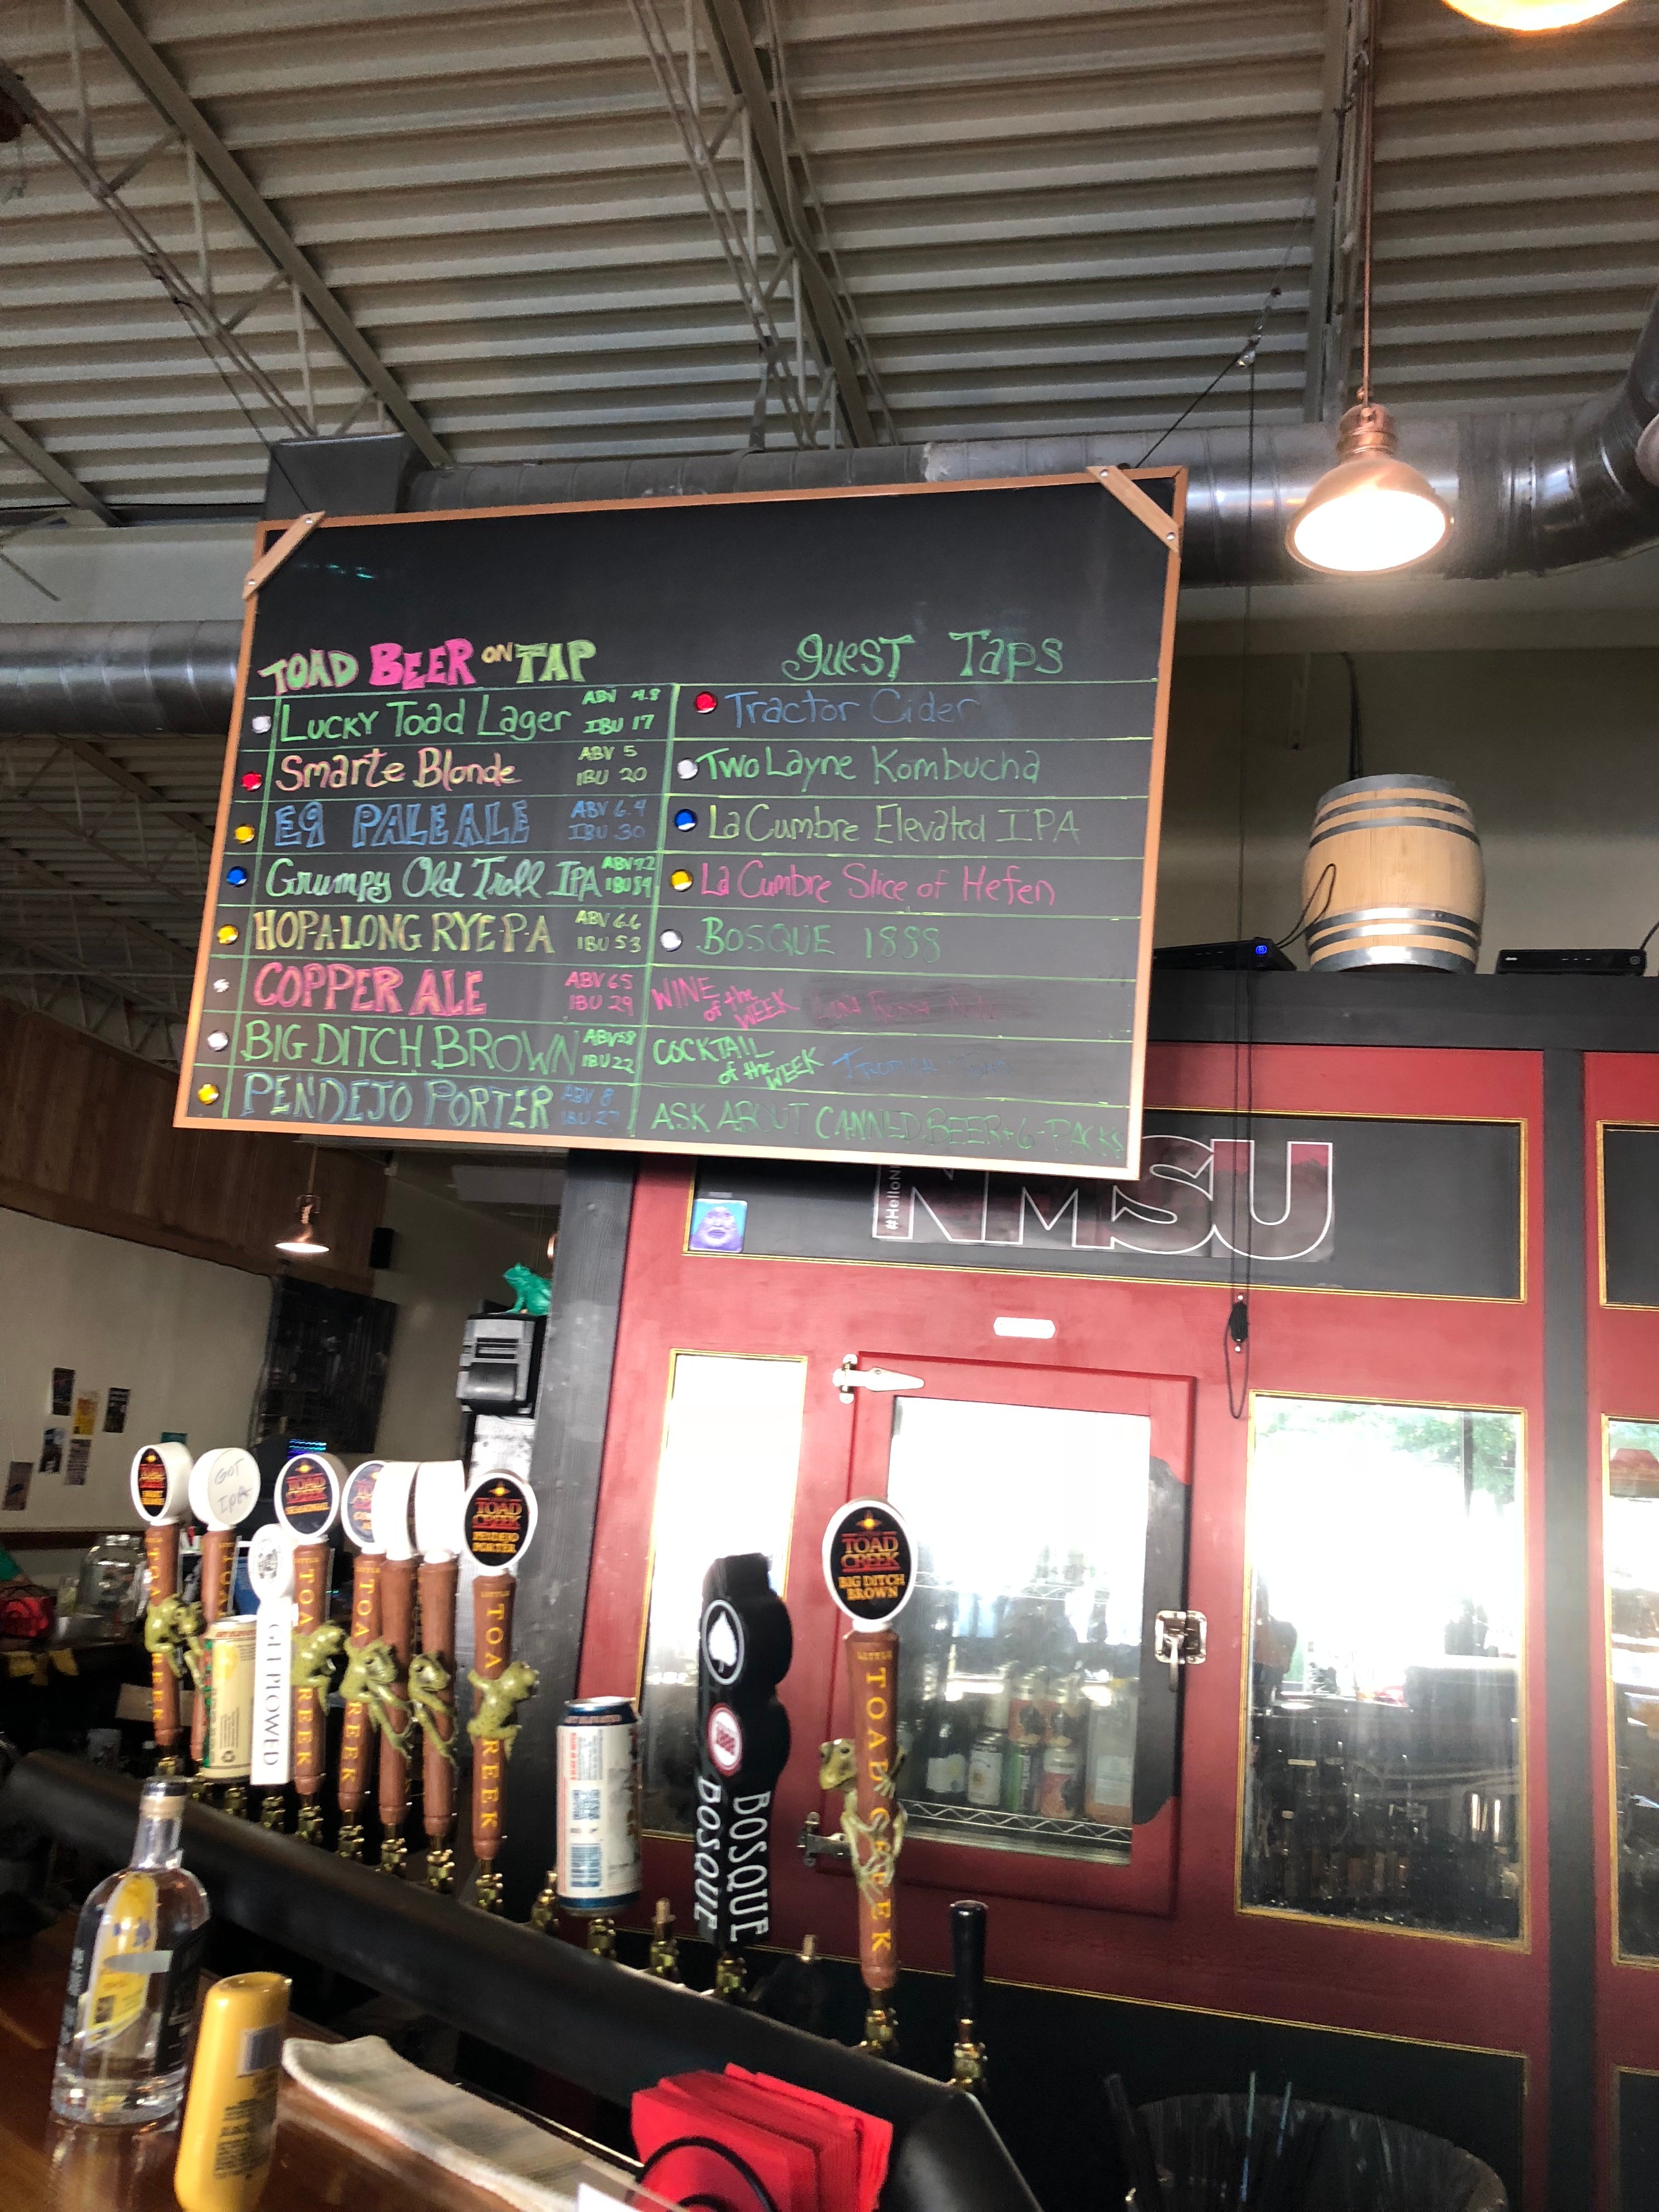 TOAD BEER ON TAP
LUCKY TOAD LAGER ABV 4.8 IBU 17
Smarte Blonde ABV 5 IBU 20
E9 PALE ALE ABV 6.4 IBU 30
Grumpy Old Troll IPA ABV 7.2 IBU 59
HOP-A-LONG RYE-P-A ABV 6.6 IBU 53
COPPER ALE ABV 6.5 IBU 29
BIG DITCH BROWN ABV 5.8 IBU 22
PENDEJO PORTER ABV 8 IBU 27
guest Taps
Tractor Cider
Two Layne Kombucha
La Cumbre Elevated IPA
La Cumbre Slice of Hefen
BOSQUE 1888
WINE of the WEEK
COCKTAIL of the WEEK
ASK ABOUT CANNED BEER + 6-PACKS
NMSU
GOT IPA
TOAD CREEK
TOAD CREEK PENDEJO PORTER
TOAD CREEK BIG DITCH BROWN
GET PLOWED
LITTLE TOAD CREEK
LITTLE TOAD CREEK
BOSQUE
BOSQUE